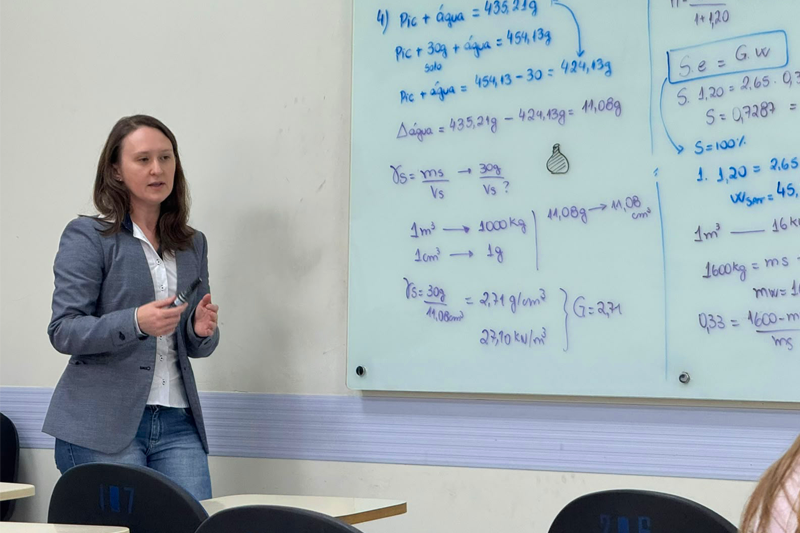 4) Pic + água = 435,21g
Pic + 30g + água = 454,13g
solo
Pic + água = 454,13 - 30 = 424,13g
Δágua = 435,21g - 424,13g = 11,08g
γs = ms/Vs → 30g/Vs ?
1m³ → 1000kg
1cm³ → 1g
11,08g → 11,08 cm³
γs = 30g/11,08cm³ = 2,71 g/cm³
27,10 kN/m³
G = 2,71
1+1,20
S.e = G.w
S. 1,20 = 2,65 · 0,3
S = 0,7287 =
S = 100%
1. 1,20 = 2,65
= 45,
1m³ — 16k
1600kg = ms -
mw = 16
0,33 = 1600-m/ms